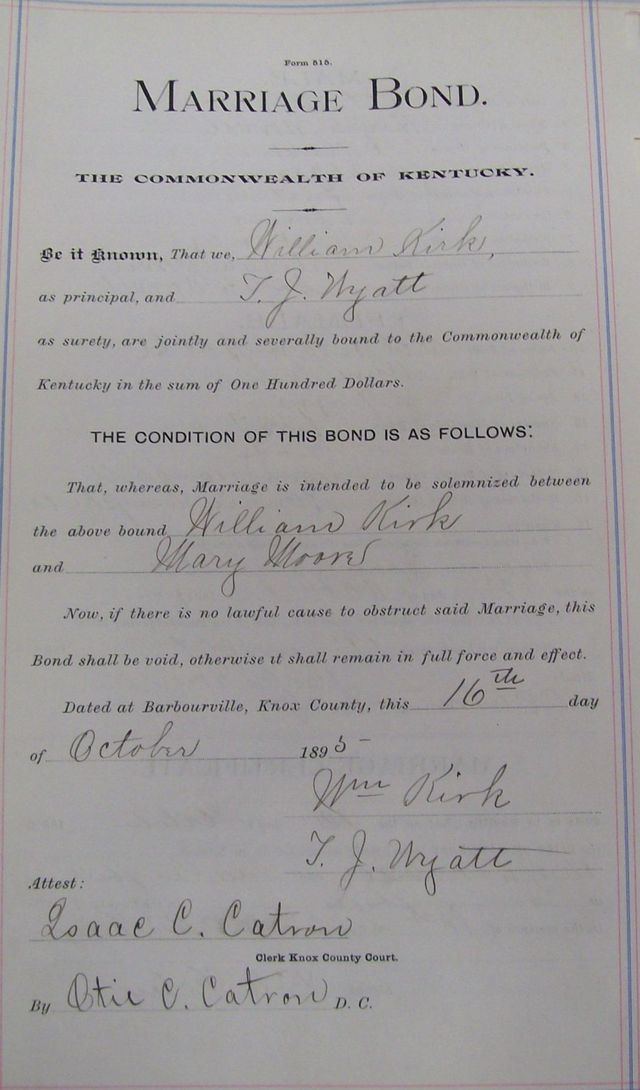 Form 515.
MARRIAGE BOND.
THE COMMONWEALTH OF KENTUCKY.
Be it Known, That we, William Kirk,
as principal, and T. J. Wyatt
as surety, are jointly and severally bound to the Commonwealth of
Kentucky in the sum of One Hundred Dollars.
THE CONDITION OF THIS BOND IS AS FOLLOWS:
That, whereas, Marriage is intended to be solemnized between
the above bound William Kirk
and Mary Moore
Now, if there is no lawful cause to obstruct said Marriage, this
Bond shall be void, otherwise it shall remain in full force and effect.
Dated at Barbourville, Knox County, this 16th day
of October 1895
Wm Kirk
T. J. Wyatt
Attest:
Isaac C. Catron
Clerk Knox County Court.
By Otie C. Catron D. C.